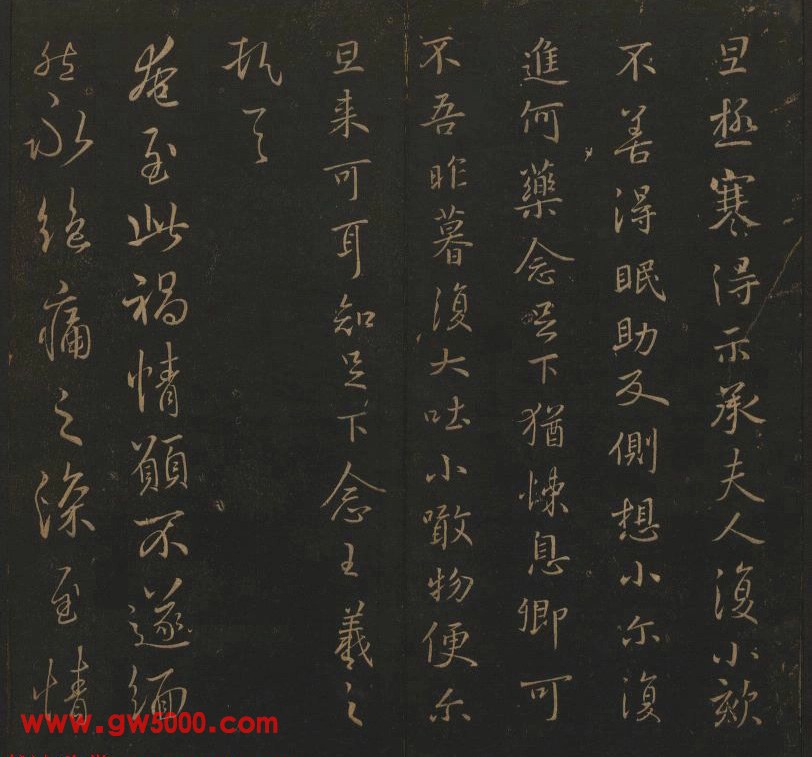 旦極寒得示承夫人復小欬
不善得眠助反側想小尔復
進何藥念足下猶悚息卿可
不吾昨暮復大吐小噉物便尔
旦来可耳知足下念王羲之
頓首
奄至此禍情願不遂緬
然永絶痛之深至情
www.gw5000.com